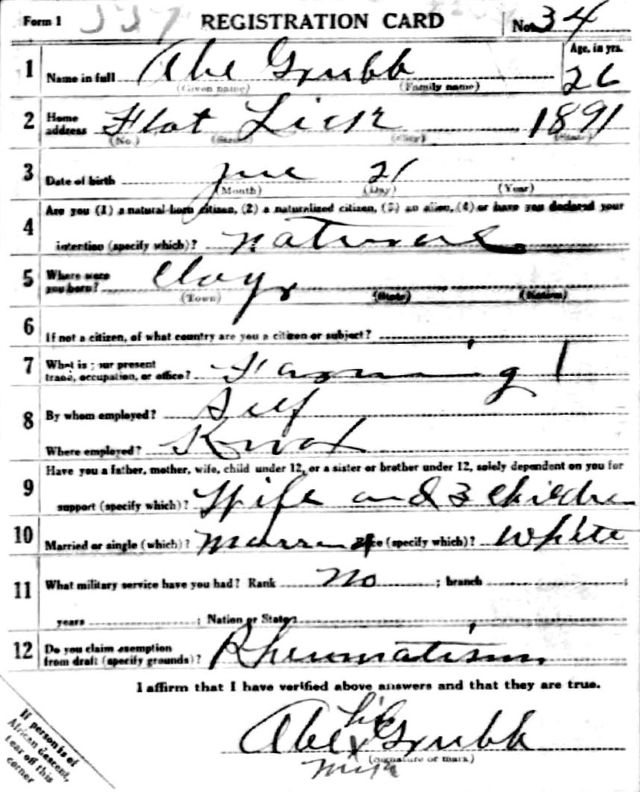 Form 1 337 REGISTRATION CARD No. 34
1 Name in full Abe Grubb Age, in yrs. 26
(Given name) (Family name)
2 Home address Flat Lick 1891
(No.) (Street) (City) (State)
3 Date of birth June 21
(Month) (Day) (Year)
4 Are you (1) a natural-born citizen, (2) a naturalized citizen, (3) an alien, (4) or have you declared your
intention (specify which)? natural
5 Where were you born? Clay
(Town) (State) (Nation)
6 If not a citizen, of what country are you a citizen or subject?
7 What is your present trade, occupation, or office? Farming
8 By whom employed? Self
Where employed? Knox
9 Have you a father, mother, wife, child under 12, or a sister or brother under 12, solely dependent on you for
support (specify which)? Wife and 3 children
10 Married or single (which)? Married Race (specify which)? White
11 What military service have you had? Rank No ; branch ;
years ; Nation or State
12 Do you claim exemption from draft (specify grounds)? Rheumatism
I affirm that I have verified above answers and that they are true.
his
Abe x Grubb
(Signature or mark)
mark
If person is of
African descent,
tear off this
corner